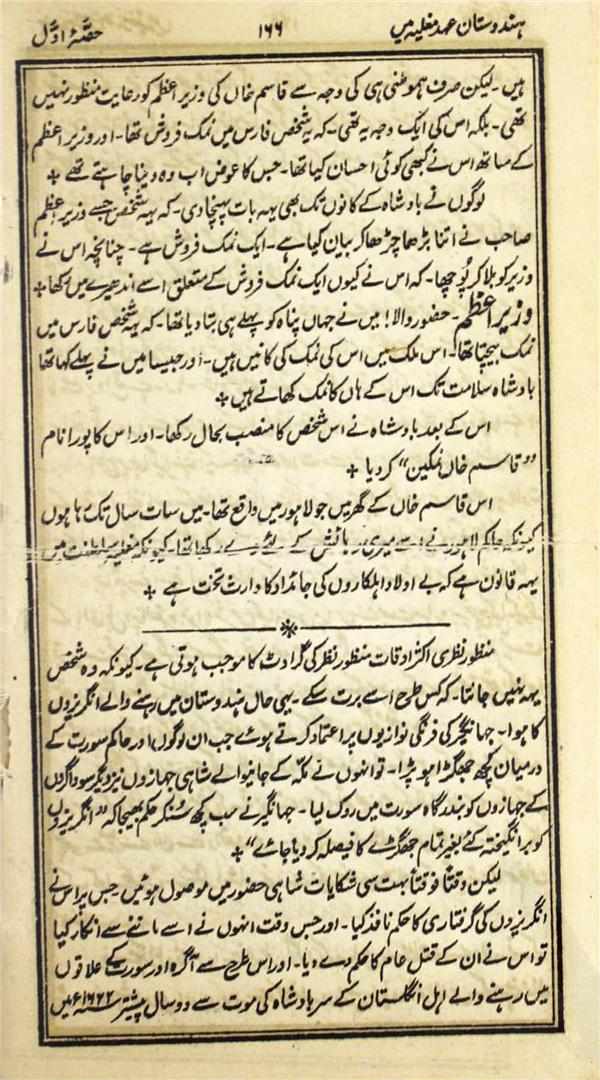 ہندوستان عہد مغلیہ میں
۱۶۶
حصّۂ اوّل
ہیں۔ لیکن صرف ہموطنی ہی کی وجہ سے قاسم خاں کی وزیر اعظم کو رعایت منظور نہیں
تھی۔ بلکہ اس کی ایک وجہ یہ تھی۔ کہ یہ شخص فارس میں نمک فروش تھا۔ اور وزیر اعظم
کے ساتھ اس نے کبھی کوئی احسان کیا تھا۔ جس کا عوض اب وہ دینا چاہتے تھے ٭
لوگوں نے بادشاہ کے کانوں تک بھی یہہ بات پہنچا دی۔ کہ یہہ شخص جسے وزیر اعظم
صاحب نے اتنا بڑھا چڑھا کر بیان کیا ہے۔ ایک نمک فروش ہے۔ چنانچہ اس نے
وزیر کو بلا کر پُوچھا۔ کہ اس نے کیوں ایک نمک فروش کے متعلق اسے اندھیرے میں رکھا ٭
وزیر اعظم۔ حضور والا! میں نے جہاں پناہ کو پہلے ہی بتا دیا تھا۔ کہ یہہ شخص فارس میں
نمک بیچتا تھا۔ اس ملک میں اس کی نمک کی کانیں ہیں۔ اور جیسا میں نے پہلے کہا تھا
بادشاہ سلامت تک اس کے ہاں کا نمک کھاتے ہیں ٭
اس کے بعد بادشاہ نے اس شخص کا منصب بحال رکھا۔ اور اس کا پورا نام
”قاسم خاں نمکین“ کر دیا ٭
اس قاسم خاں کے گھر میں جو لاہور میں واقع تھا۔ میں سات سال تک رہا ہوں
کیونکہ حاکم لاہور نے اسے میری رہائش کے لئے دے رکھا تھا۔ کیونکہ مغلیہ سلطنت میں
یہہ قانون ہے کہ بے اولاد اہلکاروں کی جائداد کا وارث تخت ہے ٭
منظور نظری اکثر اوقات منظور نظر کی گراوٹ کا موجب ہوتی ہے۔ کیونکہ وہ شخص
یہہ نہیں جانتا۔ کہ کس طرح اسے برت سکے۔ یہی حال ہندوستان میں رہنے والے انگریزوں
کا ہوا۔ جہانگیر کی فرنگی نوازیوں پر اعتماد کرتے ہوئے جب ان لوگوں اور حاکم سورت کے
درمیان کچھ جھگڑا ہو پڑا۔ تو انہوں نے مکّہ کے جانیوالے شاہی جہازوں نیز دیگر سوداگروں
کے جہازوں کو بندرگاہ سورت میں روک لیا۔ جہانگیر نے سب کچھ سُنکر حکم بھیجا کہ ”انگریزوں
کو برانگیختہ کئے بغیر تمام جھگڑے کا فیصلہ کر دیا جائے“ ٭
لیکن وقتاً فوقتاً بہت سی شکایات شاہی حضور میں موصول ہوئیں جس پر اس نے
انگریزوں کی گرفتاری کا حکم نافذ کیا۔ اور جس وقت انہوں نے اسے ماننے سے انکار کیا
تو اس نے ان کے قتل عام کا حکم دے دیا۔ اور اس طرح سے آگرہ اور سورت کے علاقوں
میں رہنے والے اہل انگلستان کے سر بادشاہ کی موت سے دو سال پیشتر ۱۶۲۲ء میں